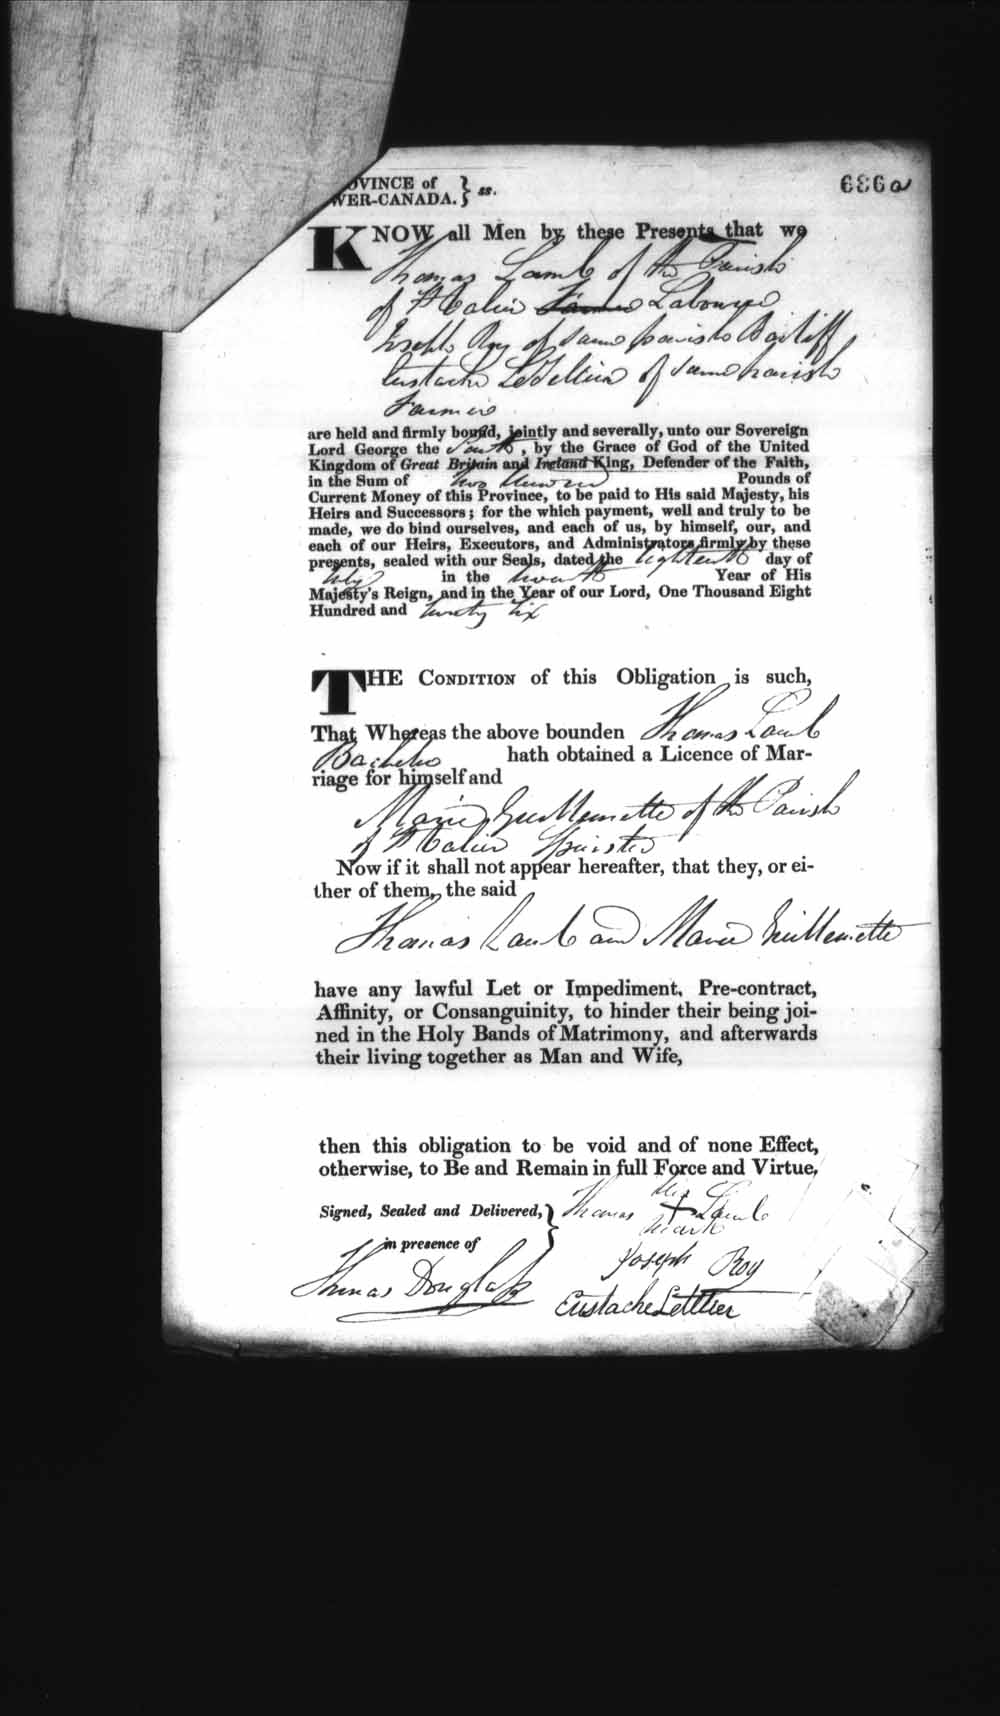 OVINCE of
WER-CANADA. } ss.
686a
KNOW all Men by these Presents that we
Thomas Lamb of the Parish
of St Valier Farmer Labourer
Joseph Roy of same parish Bailiff
Eustache Letellier of same parish
Farmer
are held and firmly bound, jointly and severally, unto our Sovereign
Lord George the Fourth, by the Grace of God of the United
Kingdom of Great Britain and Ireland King, Defender of the Faith,
in the Sum of two hundred Pounds of
Current Money of this Province, to be paid to His said Majesty, his
Heirs and Successors; for the which payment, well and truly to be
made, we do bind ourselves, and each of us, by himself, our, and
each of our Heirs, Executors, and Administrators firmly by these
presents, sealed with our Seals, dated the eighteenth day of
July in the seventh Year of His
Majesty's Reign, and in the Year of our Lord, One Thousand Eight
Hundred and twenty six
THE CONDITION of this Obligation is such,
That Whereas the above bounden Thomas Lamb
Bachelor hath obtained a Licence of Mar-
riage for himself and
Marie Guillemette of the Parish
of St Valier Spinster
Now if it shall not appear hereafter, that they, or ei-
ther of them, the said
Thomas Lamb and Marie Guillemette
have any lawful Let or Impediment, Pre-contract,
Affinity, or Consanguinity, to hinder their being joi-
ned in the Holy Bands of Matrimony, and afterwards
their living together as Man and Wife,
then this obligation to be void and of none Effect,
otherwise, to Be and Remain in full Force and Virtue.
Signed, Sealed and Delivered, }
in presence of
Thomas Douglass
his
Thomas + Lamb
mark
Joseph Roy
Eustache Letellier